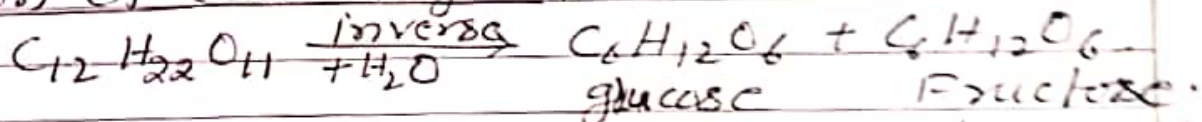 C12 H22 O11 inversa +H2O C6H12O6 + C6H12O6
glucose Fructose.